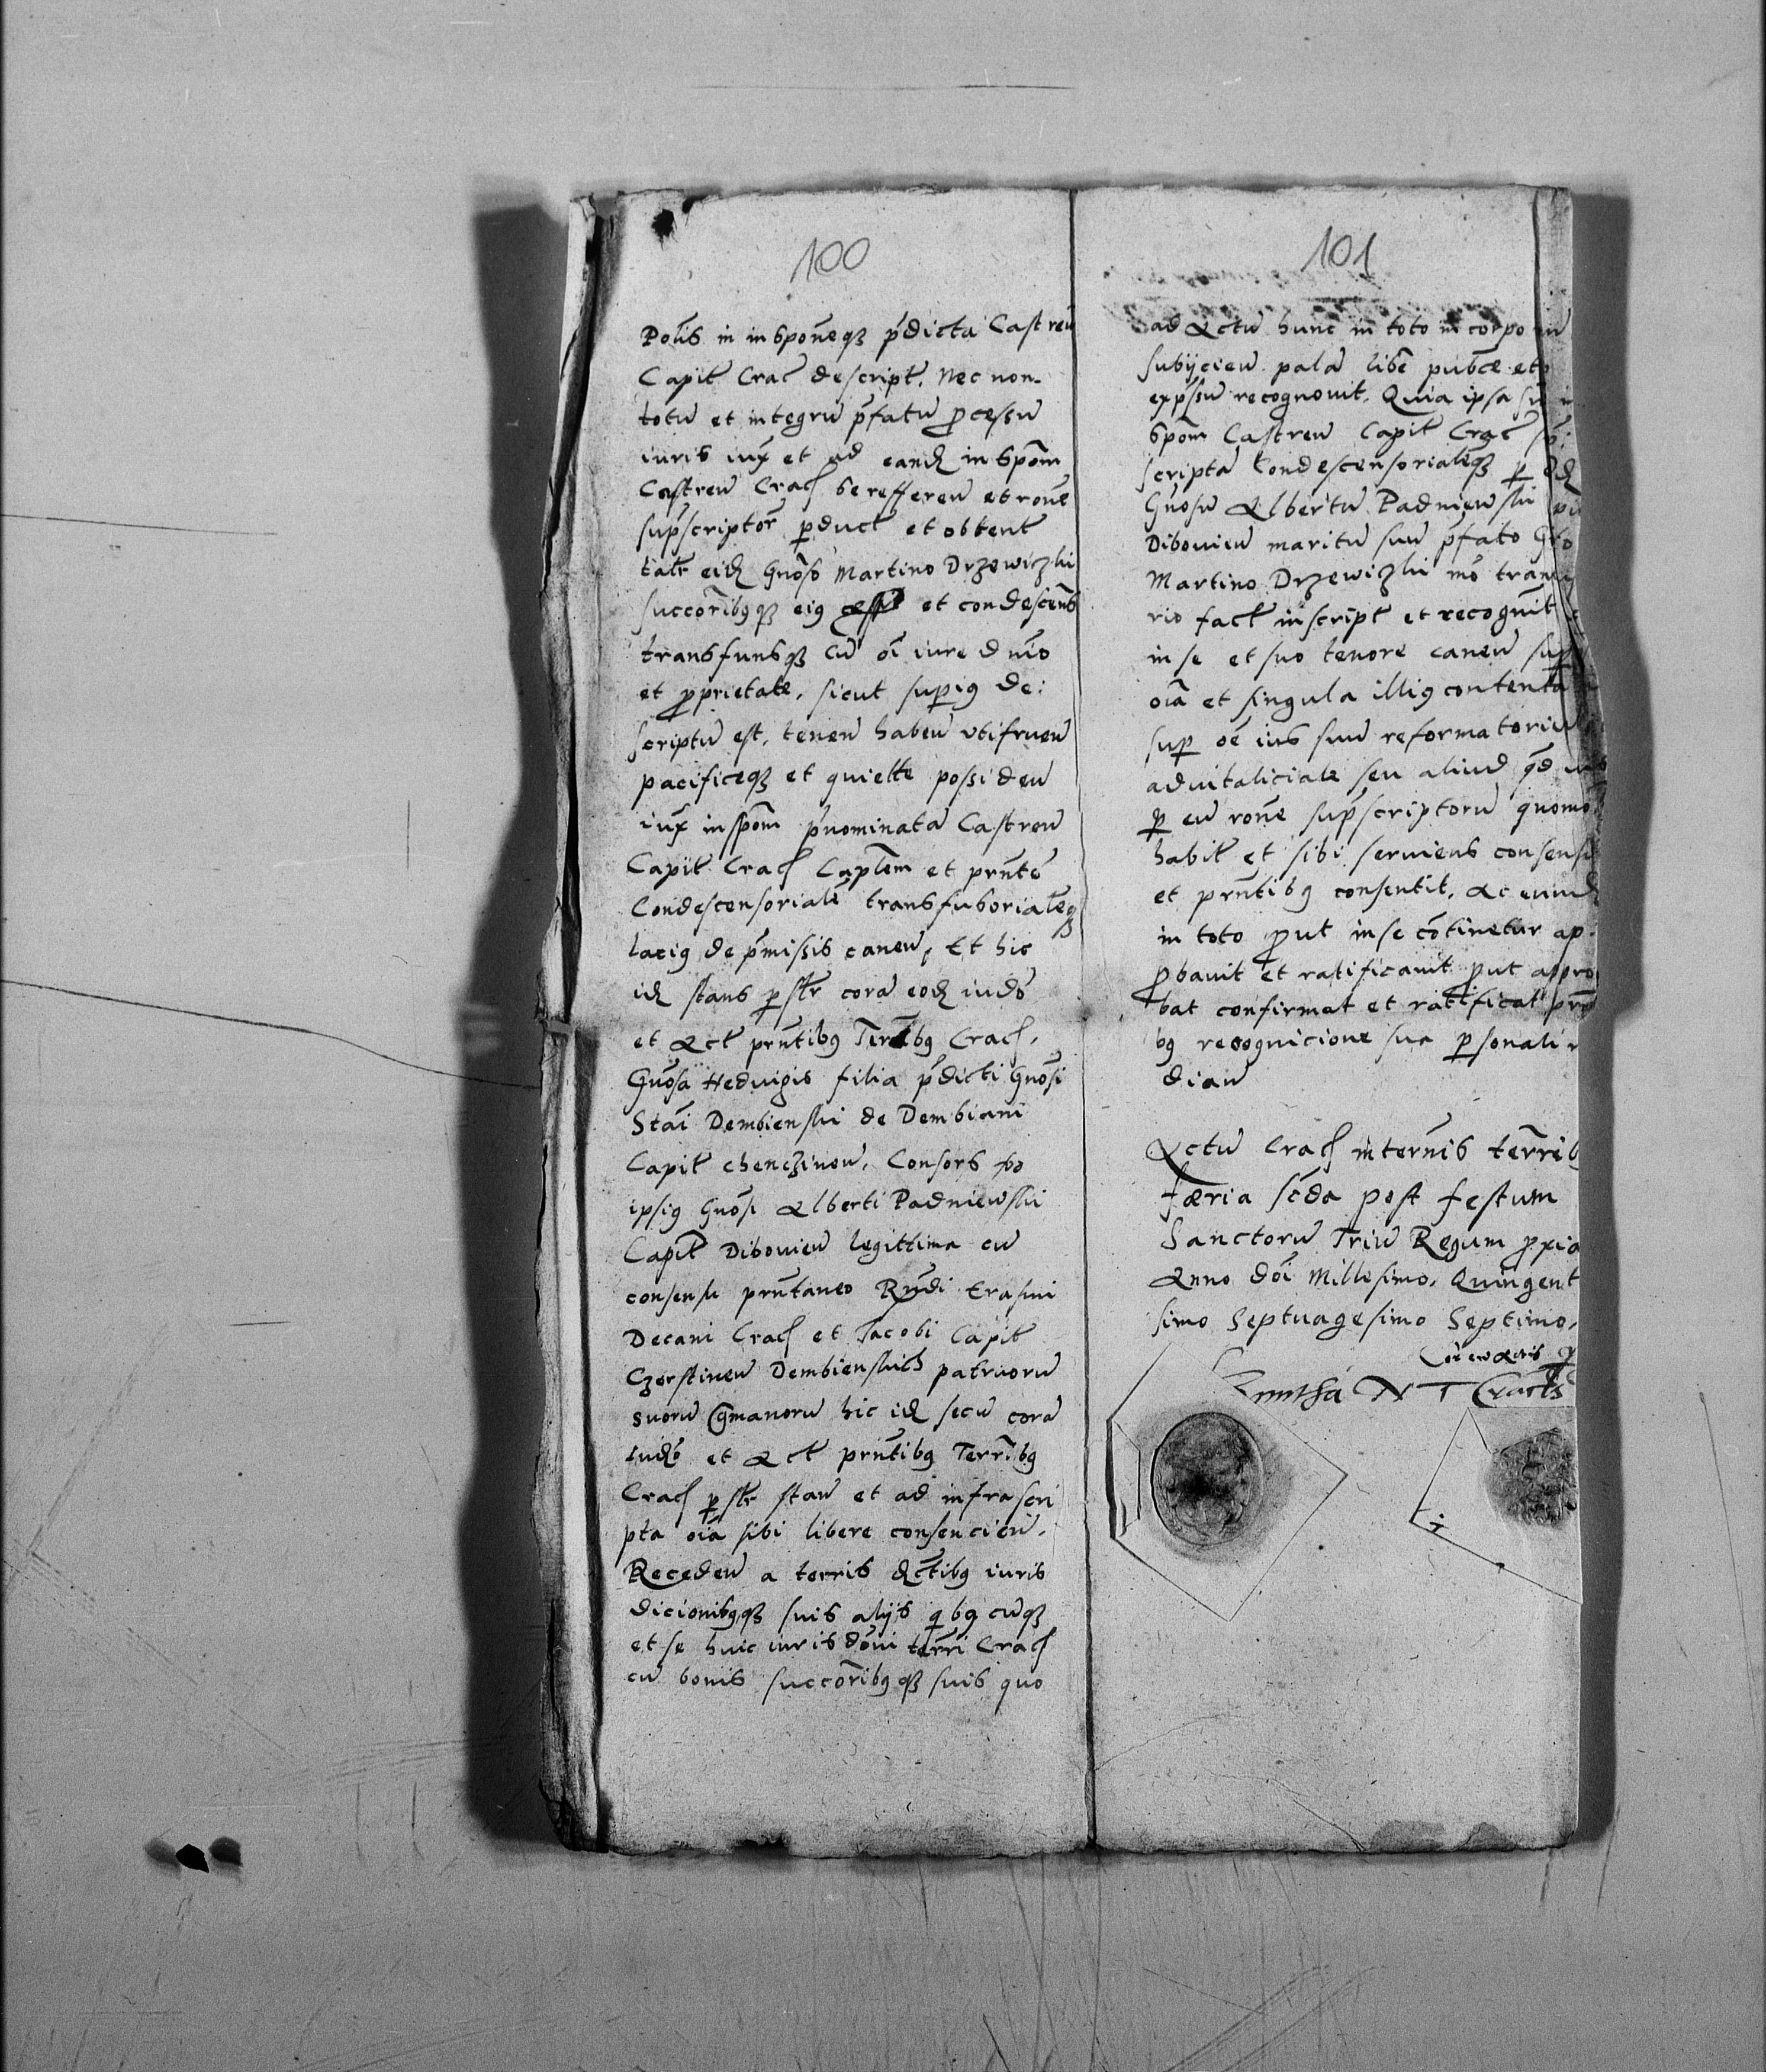 100
Polīs in inspōneqȝ p̄dicta Castreū
Capit̄ Crac̄ descript̄. Nec non
totū et integrū p̄fatū ꝓcessū
iuris iux̄ et ad eandꝫ inspōm
Castreū Crac̄ se refferen̄ et rōne
sup̄scriptor̄ ꝑduct̄ et obtent̄
talr̄ eidꝫ Gnōso Martino Drzewiczki
succōribꝰqȝ eiꝰ et condescens̄
transfunsqȝ cū oī iure dnīo
et ꝓprietate, sicut supiꝰ de:
scriptū est, tenen̄ haben̄ vtifruen̄
pacificeqȝ et quiette possiden̄
iux̄ inspōm p̄nominatā Castren̄
Capit̄ Crac̄ Capt̄em et prn̄tē
Condescensorialē transfusorialēqȝ
laciꝰ de p̄missis canen̄, Et hic
idꝫ stans ꝑslr̄ corā eodꝫ iudō
et Act̄ prn̄tibꝰ Terr̄bꝰ Crac̄,
Gnōsa Heduigis filia p̄dicti Gnōsi
Stāi Dembienski de Dembiani
Capit̄ chenczinen̄, Consors
ipsiꝰ Gnōsi Alberti Padniewski
Capit̄ Dibouien̄ legittima cū
consensu prn̄taneo Rn̄di Erasmi
Decani Crac̄ et Jacobi Capit̄
Czorstinen̄ Dembienskich patruorū
suorū Gmanorū hic idꝫ secū corā
Iudō et Act̄ prn̄tibꝰ Terr̄ibꝰ
Crac̄ ꝑslr̄ stan̄ et ad infrascri
pta oīa sibi libere consencien̄,
Receden̄ a terris dc̄tibꝰ iuris
dicionibꝰqȝ suis alijs qbꝰcūqȝ
et se huic iurisdōni terr̄i Crac̄
cū bonis succōribꝰqȝ suis quo
101
ad Actū hunc in toto incorpo
subijcien̄ palā libē pub̄ce et
exp̄ssū recognouit, Quia ipsa
spōm Castren̄ Capit̄ Crac̄
scriptā Condescensorialēqȝ ꝑ
Gnōsū Albertū Padniewski
Dibouien̄ maritū suū p̄fato Gso
Martino Drzewiczki mō tran
rio fact̄ inscript̄ et recognit̄
in se et suo tenore canen̄ sup
oīa et singula illiꝰ contenta
sup oē ius suū reformatoriū
aduitaliciale seu aliud qd̄
ꝑ eū rōne sup̄scriptorū quomō
habit̄ et sibi seruiens consensit
et prn̄tibꝰ consentit, Ac
in toto ꝓut in se cōtinetur ap:
ꝓbauit et ratificauit ꝓut appro
bat confirmat et ratificat prn̄
bꝰ recognicione sua ꝑsonali
dian̄
Actū Crac̄ in ternīs terr̄ibꝰ
færia sc̄da post festum
Sanctorū Triū Regum ꝓxia
Anno doī Millesimo, Quingent
simo Septuagesimo Septimo,
N T Crac̄